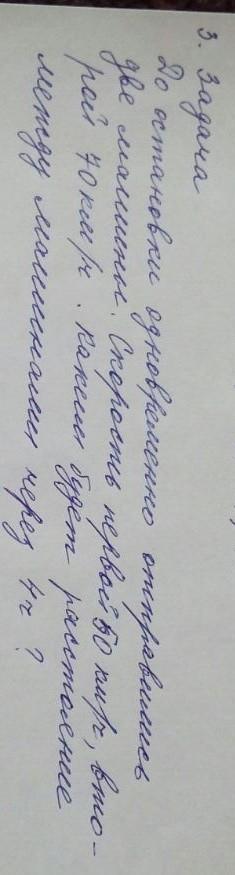 3. Задача
До остановки одновременно отправились
две машины. Скорость первой 50 км/ч, вто-
рой 70 км/ч. Каким будет расстояние
между машинами через 4ч?